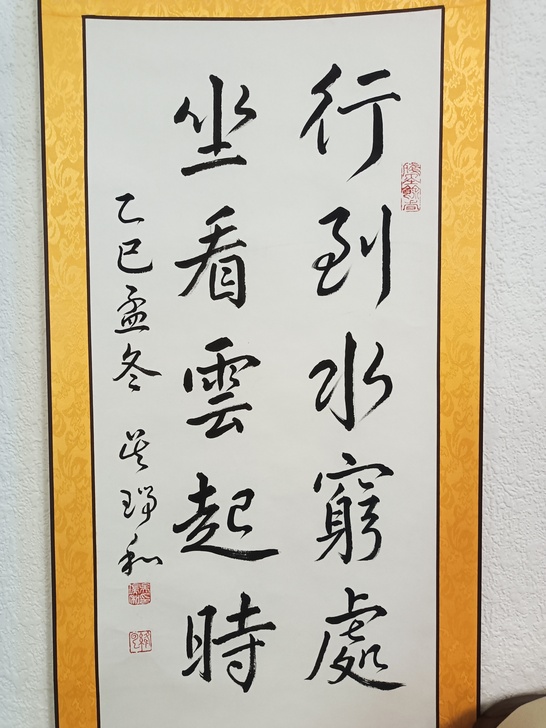 行到水窮處
坐看雲起時
乙巳孟冬 吳瑞和